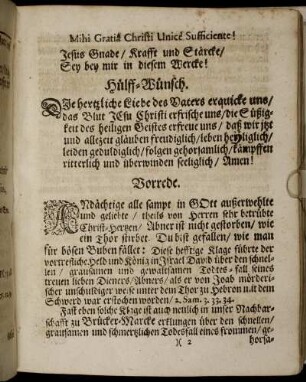 Mihi Gratiâ Christi Unicè Sufficiente!
Jesus Gnade/ Krafft und Stärcke/
Sey bey mir in diesem Wercke!
Hülff-Wünsch.
DIe hertzliche Liebe des Vaters erquicke uns/
das Blut JEsu Christi erfrische uns/ die Süßig-
keit des heiligen Geistes erfreue uns/ daß wir jtzt
und allezeit gläuben freudiglich/ leben heyliglich/
leiden gedultiglich/ folgen gehorsamlich/ kämpffen
ritterlich und überwinden seeliglich/ Amen!
Vorrede.
ANdächtige alle sampt in GOtt außerwehlte
und geliebte / theils von Herren sehr betrübte
Christ-Hertzen/ Abner ist nicht gestorben/ wie
ein Thor stirbet. Du bist gefallen/ wie man
für bösen Buben fället: Diese hefftige Klage führte der
vortreffliche Held und König in Israel David über den schnel-
len / grausamen und gewaltsamen Todtes-fall seines
treuen lieben Dieners/ Abners/ als er von Joab mörderi-
scher unschuldiger weise unter dem Thor zu Hebron mit dem
Schwerd war erstochen worden/ 2. Sam. 3. 33. 34.
Fast eben solche Klage ist auch neulich in unser Nachbar-
schafft zu Brücker-Marcke erklungen über den schnellen/
grausamen und schmertzlichen Todtesfall eines frommen/ ge-
)( 2
horsa-